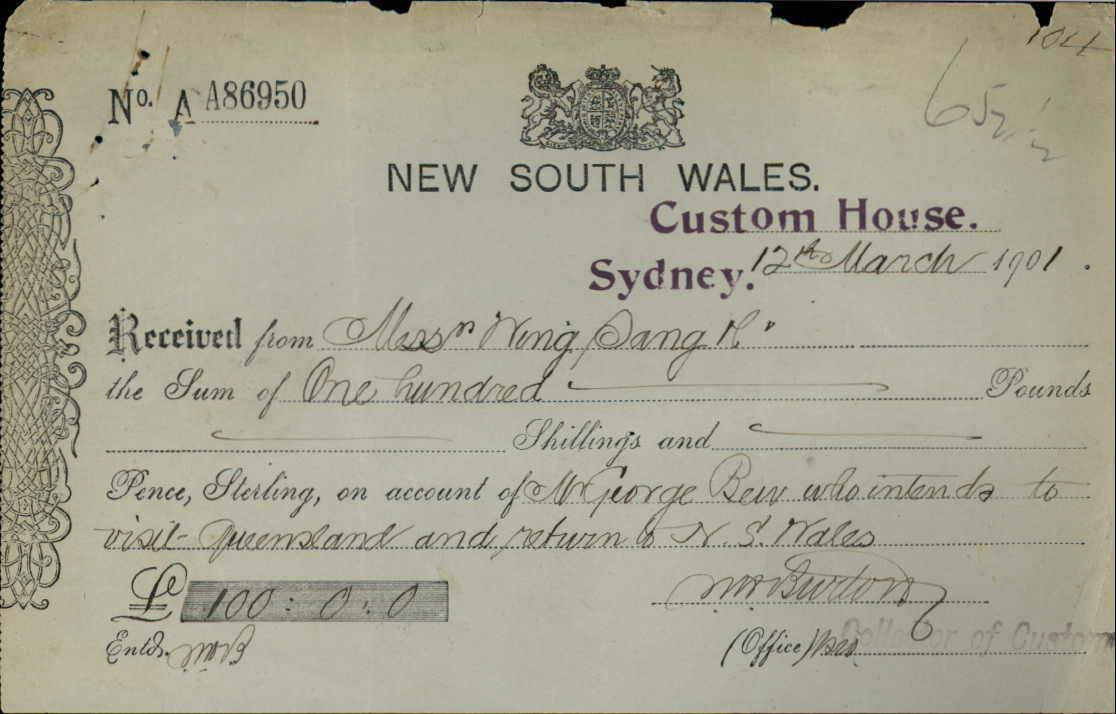 104
652
No. A A86950
NEW SOUTH WALES.
Custom House.
Sydney. 12th March 1901.
Received from Messrs Wing Sang &
the Sum of One hundred Pounds
Shillings and
Pence, Sterling, on account of Mr George Bew who intends to
visit Queensland and return to N. S. Wales
£ 100 : 0 : 0
Burton
Entd.
(Office) Collector of Customs